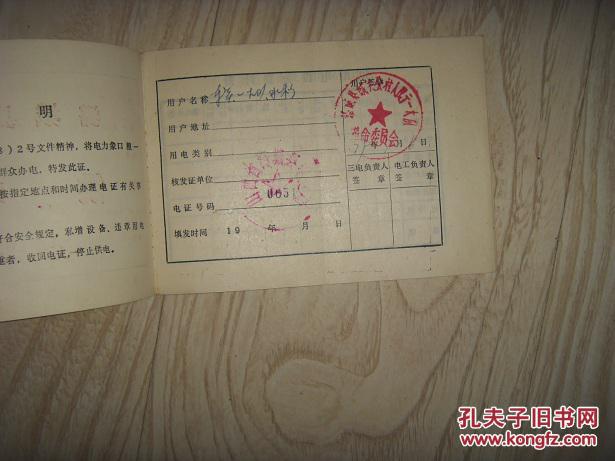 明
)2号文件精神，将电力象口粮一
群众办电，特发此证。
按指定地点和时间办理电证有关事
符合安全规定，私增设备、违章用电
者，收回电证，停止供电。
用户名称
用户地址
用电类别
核发证单位
电证号码
065
填发时间 19 年 月 日
用户签章
革命委员会
年
三电负责人
签 章
电工负责人
签 章
孔夫子旧书网
www.kongfz.com